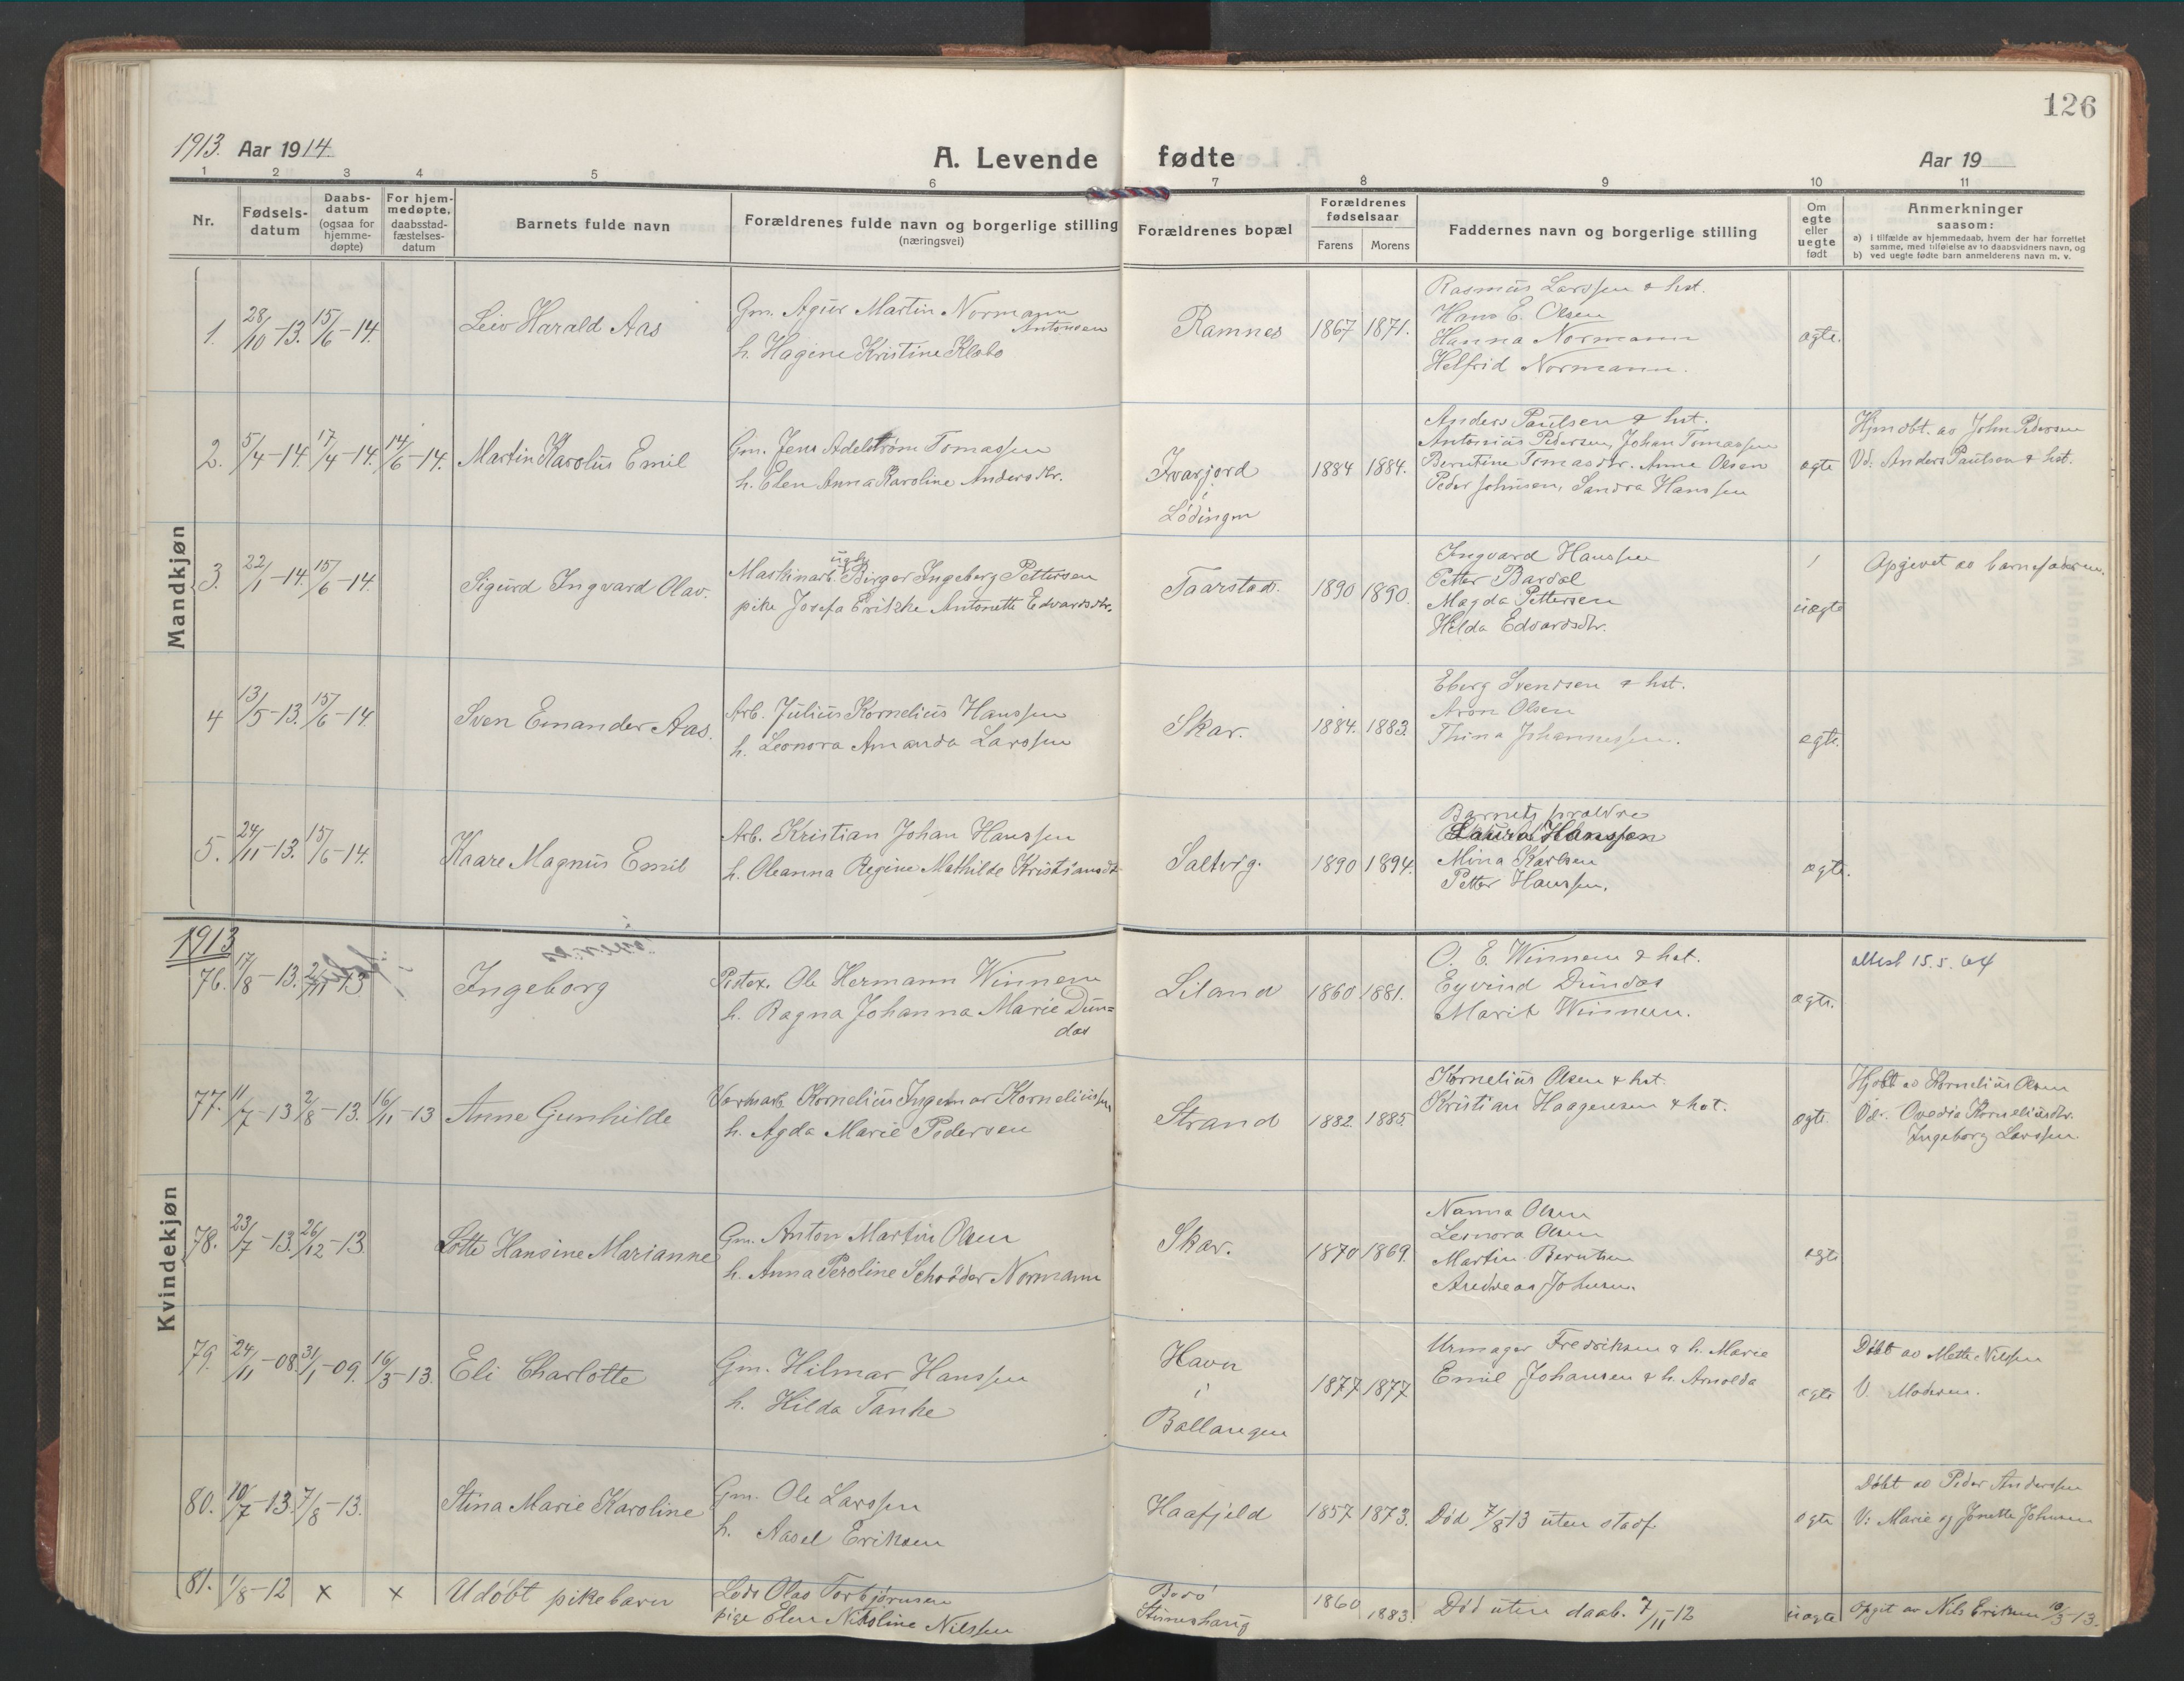 126
1913. Aar 1914
A. Levende fødte
Aar 19
1 2 3 4 5 6 7 8 9 10 11
Nr.
Fødsels-
datum
Daabs-
datum
(ogsaa for
hjemme-
døpte)
For hjem-
medøpte,
daabsstad-
fæstelses-
datum
Barnets fulde navn
Forældrenes fulde navn og borgerlige stilling
(næringsvei)
Forældrenes bopæl
Forældrenes
fødselsaar
Farens Morens
Faddernes navn og borgerlige stilling
Om
egte
eller
uegte
født
Anmerkninger
saasom:
a) i tilfælde av hjemmedaab, hvem der har forrettet
samme, med tilføielse av to daabsvidners navn, og
b) ved uegte fødte barn anmelderens navn m. v.
Mandkjøn
1. 28/10-13. 15/6-14. Leiv Harald Aas
Gm. Agur Martin Normann
Antonsen
h. Hagine Kristine Klobo
Ramnes 1867 1871.
Rasmus Larssen & hst.
Hans E. Olsen
Hanna Normann
Helfrid Normann.
egte.
2. 5/4-14. 17/4-14. 14/6-14. Martin Karolus Emil
Gm. Jens Adelstrøm Tomassen
h. Elen Anna Karoline Andersdtr.
Ivarjord
i
Lödingen
1884 1884.
Anders Paulsen & hst.
Antonius Pedersen, Johan Tomassen
Berntine Tomasdtr. Anna Olsen
Peder Johnsen, Sandra Hanssen
egte
Hjmdbt. av John Pedersen
Vd: Anders Paulsen & hst.
3. 22/1-14. 15/6-14. Sigurd Ingvard Olav.
ugh
Maskinarb. Birger Ingeberg Pettersen
pike Josefa Erikke Antonette Edvardsdtr.
Taarstad. 1890 1890.
Ingvard Hanssen
Petter Bardal
Magda Pettersen
Hilda Edvardsdtr.
uegte
Opgivet av barnefaderen.
4 13/5-13. 15/6-14. Sven Emander Aas.
Arb. Julius Kornelius Hanssen
h. Leonora Amanda Larssen
Skar. 1884. 1883.
Eberg Svendsen & hst.
Aron Olsen
Thina Johannessen.
egte.
5. 24/11-13. 15/6-14. Kaare Magnus Emil
Arb. Kristian Johan Hanssen
h. Oleanna Regine Mathilde Kristiansdtr
Saltvig. 1890 1894.
Barnets foraldre
Laura Hanssen
Mina Karlsen
Petter Hanssen.
egte.
1913
Kvindekjøn
76. 17/8-13. 2/11-13 Ingeborg
Pistex. Ole Hermann Winnem
h. Ragna Johanna Marie Dun=
das
Liland 1860 1881.
O. E. Winnem & hst.
Eyvind Dundas
Marit Winnem.
egte.
attest 15.5.64
77. 11/7-13 2/8-13. 16/11-13 Anne Gunhilde
Kornelius Ingemar Korneliussen
h. Agda Marie Pedersen
Strand 1882. 1885.
Kornelius Olsen & hst.
Kristian Haagensen & hst.
egte.
Hjdbt av Kornelius Olsen
Vd: Ovedia Korneliusdtr.
Ingeborg Larssen.
78. 23/7-13. 26/12-13. Lotte Hansine Marianne
Gm. Anton Martin Olsen
h. Anna Peroline Schrøder Normann
Skar. 1870 1869.
Nanna Olsen
Leonora Olsen
Martin Berntsen
Andreas Johnsen.
egte
79. 24/11-08. 31/1-09. 16/3-13. Eli Charlotte
Gm. Hilmar Hanssen
h. Hilda Tanke
Havn
i
Ballangen
1877 1877
Urmager Fredriksen & h. Marie
Emil Johansen & h. Arnolda
egte
Döbt av Mette Nilssen
V. Moderen.
80. 10/7-13. 7/8-13. Stina Marie Karoline
Gm. Ole Larssen
h. Aasel Eriksen
Haafjeld 1857 1873.
Död 7/8 13 uten stadf.
egte
Döbt av Peder Anderssen
V: Marie og Jonette Johnsen
81. 1/8-12 x x Udöbt pikebarn
Lods Olav Torbjørnsen
pige Elen Nikoline Nilssen
Borö
Steineshaug
1860 1883.
Död uten daab. 7/11-12
uegte
Opgit av Nils Eriksen 10/3-13.